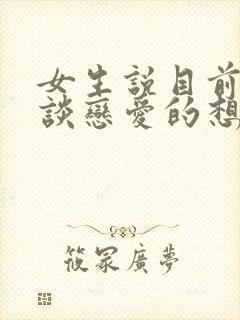 女生説目前
談戀愛的想
筱冢廣夢